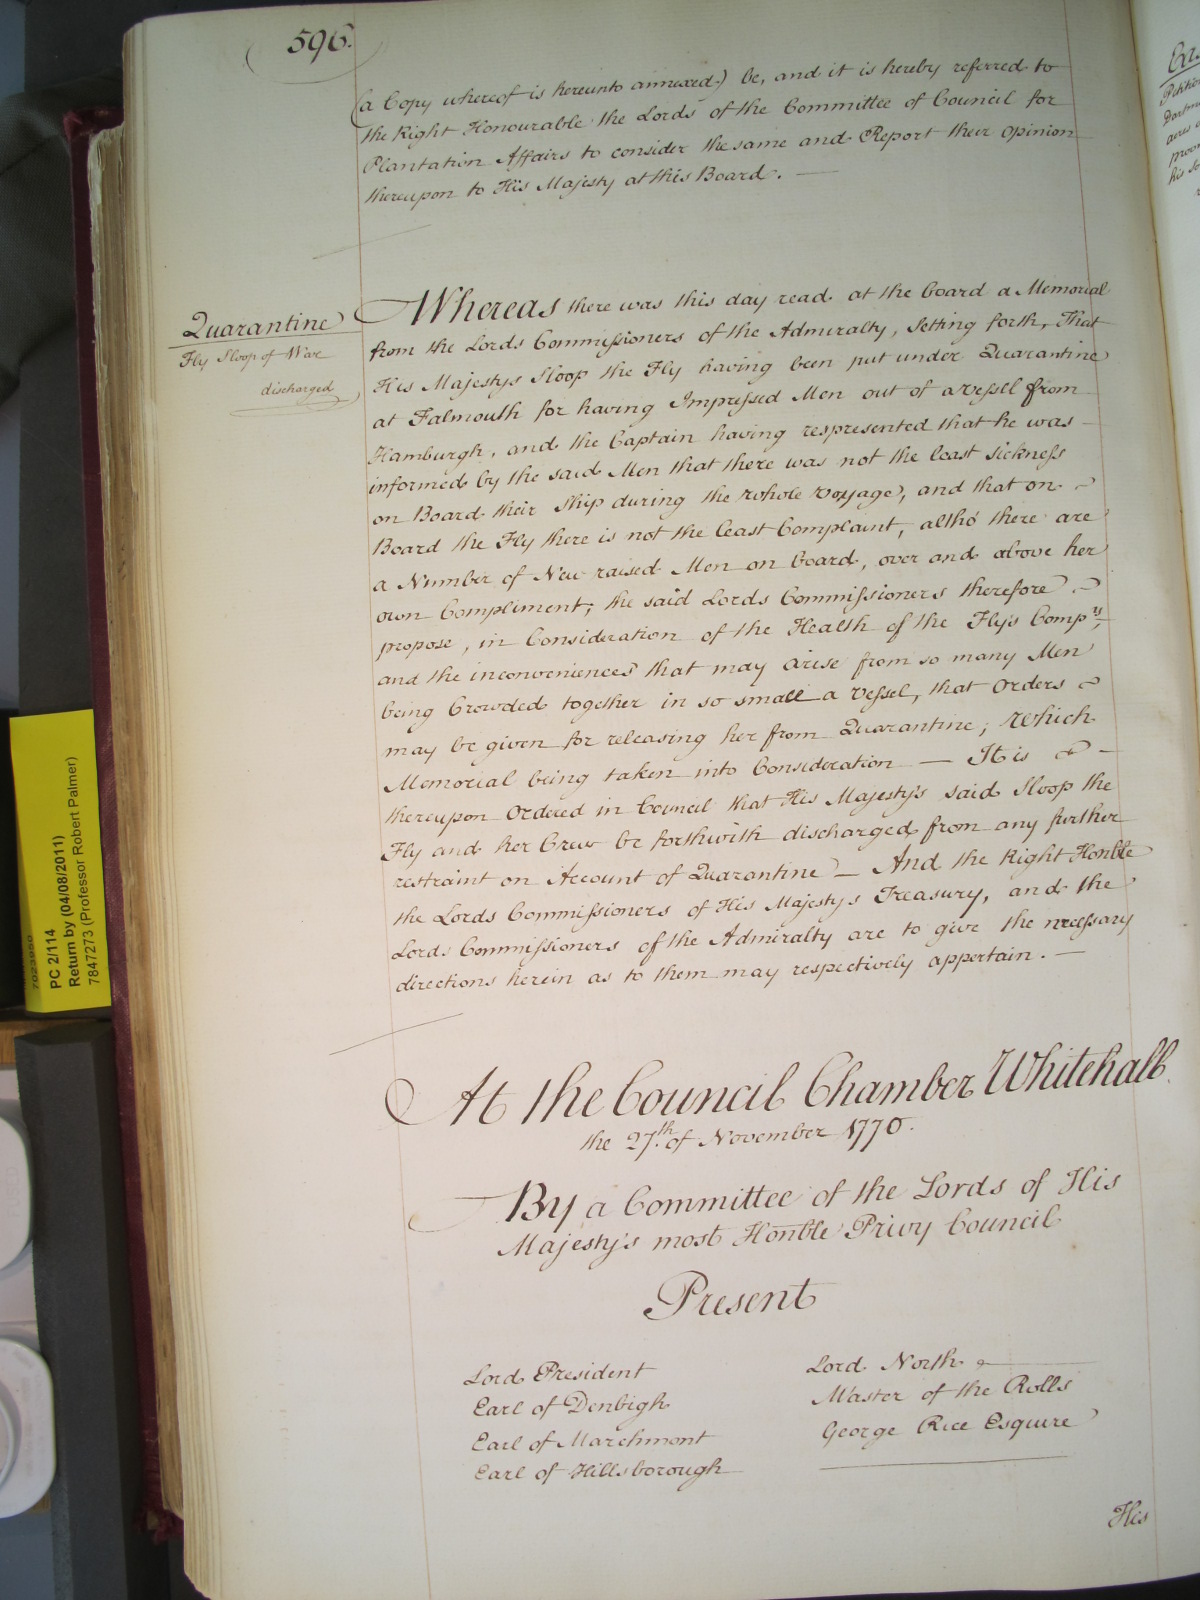 596.
(a Copy whereof is hereunto annexed) be, and it is hereby referred to
the Right Honourable the Lords of the Committee of Council for
Plantation Affairs to consider the same and Report their Opinion
thereupon to His Majesty at this Board. —
Quarantine
Fly Sloop of War
discharged
Whereas there was this day read at the Board a Memorial
from the Lords Commissioners of the Admiralty, Setting forth, That
His Majestys Sloop the Fly having been put under Quarantine
at Falmouth for having Impressed Men out of a Vessell from
Hamburgh, and the Captain having respresented that he was
informed by the said Men that there was not the least sickness
on Board their Ship during the whole Voyage, and that on
Board the Fly there is not the least Complaint, altho' there are
a Number of New raised Men on board, over and above her
own Compliment; the said Lords Commissioners therefore
propose, in Consideration of the Health of the Fly's Comp.ny,
and the inconveniences that may arise from so many Men
being Crowded together in so small a Vessel, that Orders
may be given for releasing her from Quarantine; Which
Memorial being taken into Consideration — It is
thereupon Ordered in Council that His Majesty's said Sloop the
Fly and her Crew be forthwith discharged from any further
restraint on Account of Quarantine — And the Right Honble
the Lords Commissioners of His Majesty's Treasury, and the
Lords Commissioners of the Admiralty are to give the necessary
directions herein as to them may respectively appertain. —
At the Council Chamber Whitehall
the 27.th of November 1770.
By a Committee of the Lords of His
Majesty's most Honble Privy Council
Present
Lord President
Earl of Denbigh
Earl of Marchmont
Earl of Hillsborough
Lord North
Master of the Rolls
George Rice Esquire
His
PC 2/114
Return by (04/08/2011)
7847273 (Professor Robert Palmer)